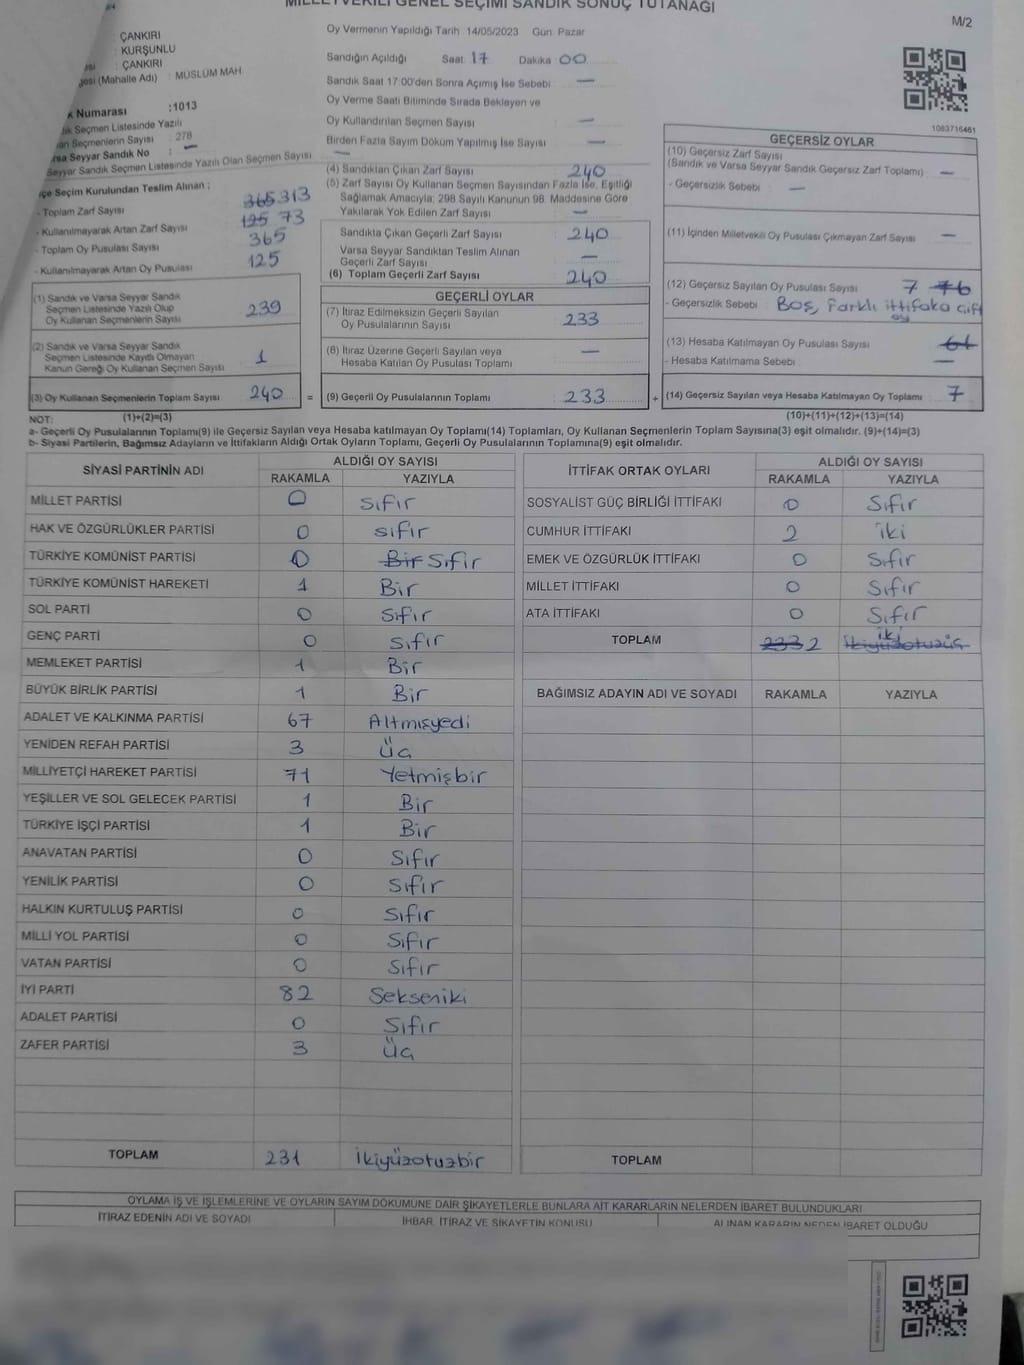 MİLLETVEKİLİ GENEL SEÇİMİ SANDIK SONUÇ TUTANAĞI
M/2
ÇANKIRI
KURŞUNLU
ÇANKIRI
(Mahalle Adı) : MÜSLÜM MAH.
Numarası :1013
Seçmen Listesinde Yazılı
Seçmenlerin Sayısı : 278
Seyyar Sandık No : —
Seyyar Sandık Seçmen Listesinde Yazılı Olan Seçmen Sayısı —
Seçim Kurulundan Teslim Alınan ;
- Toplam Zarf Sayısı 365 313
- Kullanılmayarak Artan Zarf Sayısı 125 73
- Toplam Oy Pusulası Sayısı 365
- Kullanılmayarak Artan Oy Pusulası 125
(1) Sandık ve Varsa Seyyar Sandık
Seçmen Listesinde Yazılı Olup
Oy Kullanan Seçmenlerin Sayısı 239
(2) Sandık ve Varsa Seyyar Sandık
Seçmen Listesinde Kayıtlı Olmayan
Kanun Gereği Oy Kullanan Seçmen Sayısı 1
(3) Oy Kullanan Seçmenlerin Toplam Sayısı 240 =
(1)+(2)=(3)
Oy Vermenin Yapıldığı Tarih 14/05/2023 Gün: Pazar
Sandığın Açıldığı Saat: 17 Dakika: 00
Sandık Saat 17:00'den Sonra Açılmış İse Sebebi —
Oy Verme Saati Bitiminde Sırada Bekleyen ve
Oy Kullandırılan Seçmen Sayısı —
Birden Fazla Sayım Döküm Yapılmış İse Sayısı —
(4) Sandıktan Çıkan Zarf Sayısı 240
(5) Zarf Sayısı Oy Kullanan Seçmen Sayısından Fazla İse, Eşitliği
Sağlamak Amacıyla; 298 Sayılı Kanunun 98. Maddesine Göre
Yakılarak Yok Edilen Zarf Sayısı —
Sandıkta Çıkan Geçerli Zarf Sayısı 240
Varsa Seyyar Sandıktan Teslim Alınan
Geçerli Zarf Sayısı —
(6) Toplam Geçerli Zarf Sayısı 240
GEÇERLİ OYLAR
(7) İtiraz Edilmeksizin Geçerli Sayılan
Oy Pusulalarının Sayısı 233
(8) İtiraz Üzerine Geçerli Sayılan veya
Hesaba Katılan Oy Pusulası Toplamı —
(9) Geçerli Oy Pusulalarının Toplamı 233 +
1083716461
GEÇERSİZ OYLAR
(10) Geçersiz Zarf Sayısı
(Sandık ve Varsa Seyyar Sandık Geçersiz Zarf Toplamı) —
- Geçersizlik Sebebi : —
(11) İçinden Milletvekili Oy Pusulası Çıkmayan Zarf Sayısı —
(12) Geçersiz Sayılan Oy Pusulası Sayısı 7
- Geçersizlik Sebebi : Boş, Farklı ittifaka çift
oy
(13) Hesaba Katılmayan Oy Pusulası Sayısı
- Hesaba Katılmama Sebebi : —
(14) Geçersiz Sayılan veya Hesaba Katılmayan Oy Toplamı 7
(10)+(11)+(12)+(13)=(14)
NOT:
a- Geçerli Oy Pusulalarının Toplamı(9) ile Geçersiz Sayılan veya Hesaba katılmayan Oy Toplamı(14) Toplamları, Oy Kullanan Seçmenlerin Toplam Sayısına(3) eşit olmalıdır. (9)+(14)=(3)
b- Siyasi Partilerin, Bağımsız Adayların ve İttifakların Aldığı Ortak Oyların Toplamı, Geçerli Oy Pusulalarının Toplamına(9) eşit olmalıdır.
SİYASİ PARTİNİN ADI ALDIĞI OY SAYISI
RAKAMLA YAZIYLA
MİLLET PARTİSİ 0 Sıfır
HAK VE ÖZGÜRLÜKLER PARTİSİ 0 sıfır
TÜRKİYE KOMÜNİST PARTİSİ 0 Bir Sıfır
TÜRKİYE KOMÜNİST HAREKETİ 1 Bir
SOL PARTİ 0 Sıfır
GENÇ PARTİ 0 Sıfır
MEMLEKET PARTİSİ 1 Bir
BÜYÜK BİRLİK PARTİSİ 1 Bir
ADALET VE KALKINMA PARTİSİ 67 Altmışyedi
YENİDEN REFAH PARTİSİ 3 Üç
MİLLİYETÇİ HAREKET PARTİSİ 71 Yetmişbir
YEŞİLLER VE SOL GELECEK PARTİSİ 1 Bir
TÜRKİYE İŞÇİ PARTİSİ 1 Bir
ANAVATAN PARTİSİ 0 Sıfır
YENİLİK PARTİSİ 0 Sıfır
HALKIN KURTULUŞ PARTİSİ 0 Sıfır
MİLLİ YOL PARTİSİ 0 Sıfır
VATAN PARTİSİ 0 Sıfır
İYİ PARTİ 82 Sekseniki
ADALET PARTİSİ 0 Sıfır
ZAFER PARTİSİ 3 Üç
TOPLAM 231 İkiyüzotuzbir
İTTİFAK ORTAK OYLARI ALDIĞI OY SAYISI
RAKAMLA YAZIYLA
SOSYALİST GÜÇ BİRLİĞİ İTTİFAKI 0 Sıfır
CUMHUR İTTİFAKI 2 iki
EMEK VE ÖZGÜRLÜK İTTİFAKI 0 Sıfır
MİLLET İTTİFAKI 0 Sıfır
ATA İTTİFAKI 0 Sıfır
TOPLAM 233 2 İkiyüzotuzüç iki
BAĞIMSIZ ADAYIN ADI VE SOYADI RAKAMLA YAZIYLA
TOPLAM
OYLAMA İŞ VE İŞLEMLERİNE VE OYLARIN SAYIM DÖKÜMÜNE DAİR ŞİKAYETLERLE BUNLARA AİT KARARLARIN NELERDEN İBARET BULUNDUKLARI
İTİRAZ EDENİN ADI VE SOYADI İHBAR, İTİRAZ VE ŞİKAYETİN KONUSU ALINAN KARARIN NEDEN İBARET OLDUĞU